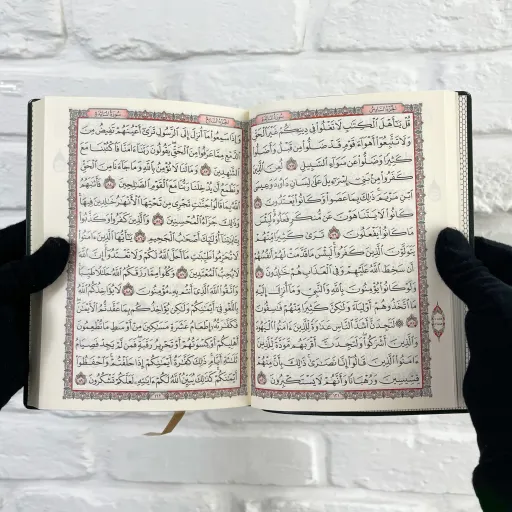 قُلْ يَٰٓأَهْلَ ٱلْكِتَٰبِ لَا تَغْلُوا۟ فِى دِينِكُمْ غَيْرَ ٱلْحَقِّ
وَلَا تَتَّبِعُوٓا۟ أَهْوَآءَ قَوْمٍ قَدْ ضَلُّوا۟ مِن قَبْلُ وَأَضَلُّوا۟
كَثِيرًا وَضَلُّوا۟ عَن سَوَآءِ ٱلسَّبِيلِ ۝ لُعِنَ ٱلَّذِينَ
كَفَرُوا۟ مِنۢ بَنِىٓ إِسْرَٰٓءِيلَ عَلَىٰ لِسَانِ دَاوُۥدَ وَعِيسَى
ٱبْنِ مَرْيَمَ ذَٰلِكَ بِمَا عَصَوا۟ وَّكَانُوا۟ يَعْتَدُونَ ۝
كَانُوا۟ لَا يَتَنَاهَوْنَ عَن مُّنكَرٍ فَعَلُوهُ لَبِئْسَ
مَا كَانُوا۟ يَفْعَلُونَ ۝ تَرَىٰ كَثِيرًا مِّنْهُمْ
يَتَوَلَّوْنَ ٱلَّذِينَ كَفَرُوا۟ لَبِئْسَ مَا قَدَّمَتْ لَهُمْ أَنفُسُهُمْ
أَن سَخِطَ ٱللَّهُ عَلَيْهِمْ وَفِى ٱلْعَذَابِ هُمْ خَٰلِدُونَ ۝
وَلَوْ كَانُوا۟ يُؤْمِنُونَ بِٱللَّهِ وَٱلنَّبِىِّ وَمَآ أُنزِلَ إِلَيْهِ
مَا ٱتَّخَذُوهُمْ أَوْلِيَآءَ وَلَٰكِنَّ كَثِيرًا مِّنْهُمْ فَٰسِقُونَ
۝ لَتَجِدَنَّ أَشَدَّ ٱلنَّاسِ عَدَٰوَةً لِّلَّذِينَ ءَامَنُوا۟ ٱلْيَهُودَ
وَٱلَّذِينَ أَشْرَكُوا۟ وَلَتَجِدَنَّ أَقْرَبَهُم مَّوَدَّةً لِّلَّذِينَ
ءَامَنُوا۟ ٱلَّذِينَ قَالُوٓا۟ إِنَّا نَصَٰرَىٰ ذَٰلِكَ بِأَنَّ مِنْهُمْ
قِسِّيسِينَ وَرُهْبَانًا وَأَنَّهُمْ لَا يَسْتَكْبِرُونَ ۝
وَإِذَا سَمِعُوا۟ مَآ أُنزِلَ إِلَى ٱلرَّسُولِ تَرَىٰٓ أَعْيُنَهُمْ تَفِيضُ مِنَ
ٱلدَّمْعِ مِمَّا عَرَفُوا۟ مِنَ ٱلْحَقِّ يَقُولُونَ رَبَّنَآ ءَامَنَّا فَٱكْتُبْنَا مَعَ
ٱلشَّٰهِدِينَ ۝ وَمَا لَنَا لَا نُؤْمِنُ بِٱللَّهِ وَمَا جَآءَنَا مِنَ ٱلْحَقِّ
وَنَطْمَعُ أَن يُدْخِلَنَا رَبُّنَا مَعَ ٱلْقَوْمِ ٱلصَّٰلِحِينَ ۝ فَأَثَٰبَهُمُ
ٱللَّهُ بِمَا قَالُوا۟ جَنَّٰتٍ تَجْرِى مِن تَحْتِهَا ٱلْأَنْهَٰرُ خَٰلِدِينَ فِيهَا
وَذَٰلِكَ جَزَآءُ ٱلْمُحْسِنِينَ ۝ وَٱلَّذِينَ كَفَرُوا۟ وَكَذَّبُوا۟
بِـَٔايَٰتِنَآ أُو۟لَٰٓئِكَ أَصْحَٰبُ ٱلْجَحِيمِ ۝ يَٰٓأَيُّهَا ٱلَّذِينَ ءَامَنُوا۟
لَا تُحَرِّمُوا۟ طَيِّبَٰتِ مَآ أَحَلَّ ٱللَّهُ لَكُمْ وَلَا تَعْتَدُوٓا۟ إِنَّ ٱللَّهَ
لَا يُحِبُّ ٱلْمُعْتَدِينَ ۝ وَكُلُوا۟ مِمَّا رَزَقَكُمُ ٱللَّهُ حَلَٰلًا طَيِّبًا
وَٱتَّقُوا۟ ٱللَّهَ ٱلَّذِىٓ أَنتُم بِهِۦ مُؤْمِنُونَ ۝ لَا يُؤَاخِذُكُمُ ٱللَّهُ
بِٱللَّغْوِ فِىٓ أَيْمَٰنِكُمْ وَلَٰكِن يُؤَاخِذُكُم بِمَا عَقَّدتُّمُ ٱلْأَيْمَٰنَ
فَكَفَّٰرَتُهُۥٓ إِطْعَامُ عَشَرَةِ مَسَٰكِينَ مِنْ أَوْسَطِ مَا تُطْعِمُونَ
أَهْلِيكُمْ أَوْ كِسْوَتُهُمْ أَوْ تَحْرِيرُ رَقَبَةٍ فَمَن لَّمْ يَجِدْ فَصِيَامُ
ثَلَٰثَةِ أَيَّامٍ ذَٰلِكَ كَفَّٰرَةُ أَيْمَٰنِكُمْ إِذَا حَلَفْتُمْ وَٱحْفَظُوٓا۟
أَيْمَٰنَكُمْ كَذَٰلِكَ يُبَيِّنُ ٱللَّهُ لَكُمْ ءَايَٰتِهِۦ لَعَلَّكُمْ تَشْكُرُونَ ۝